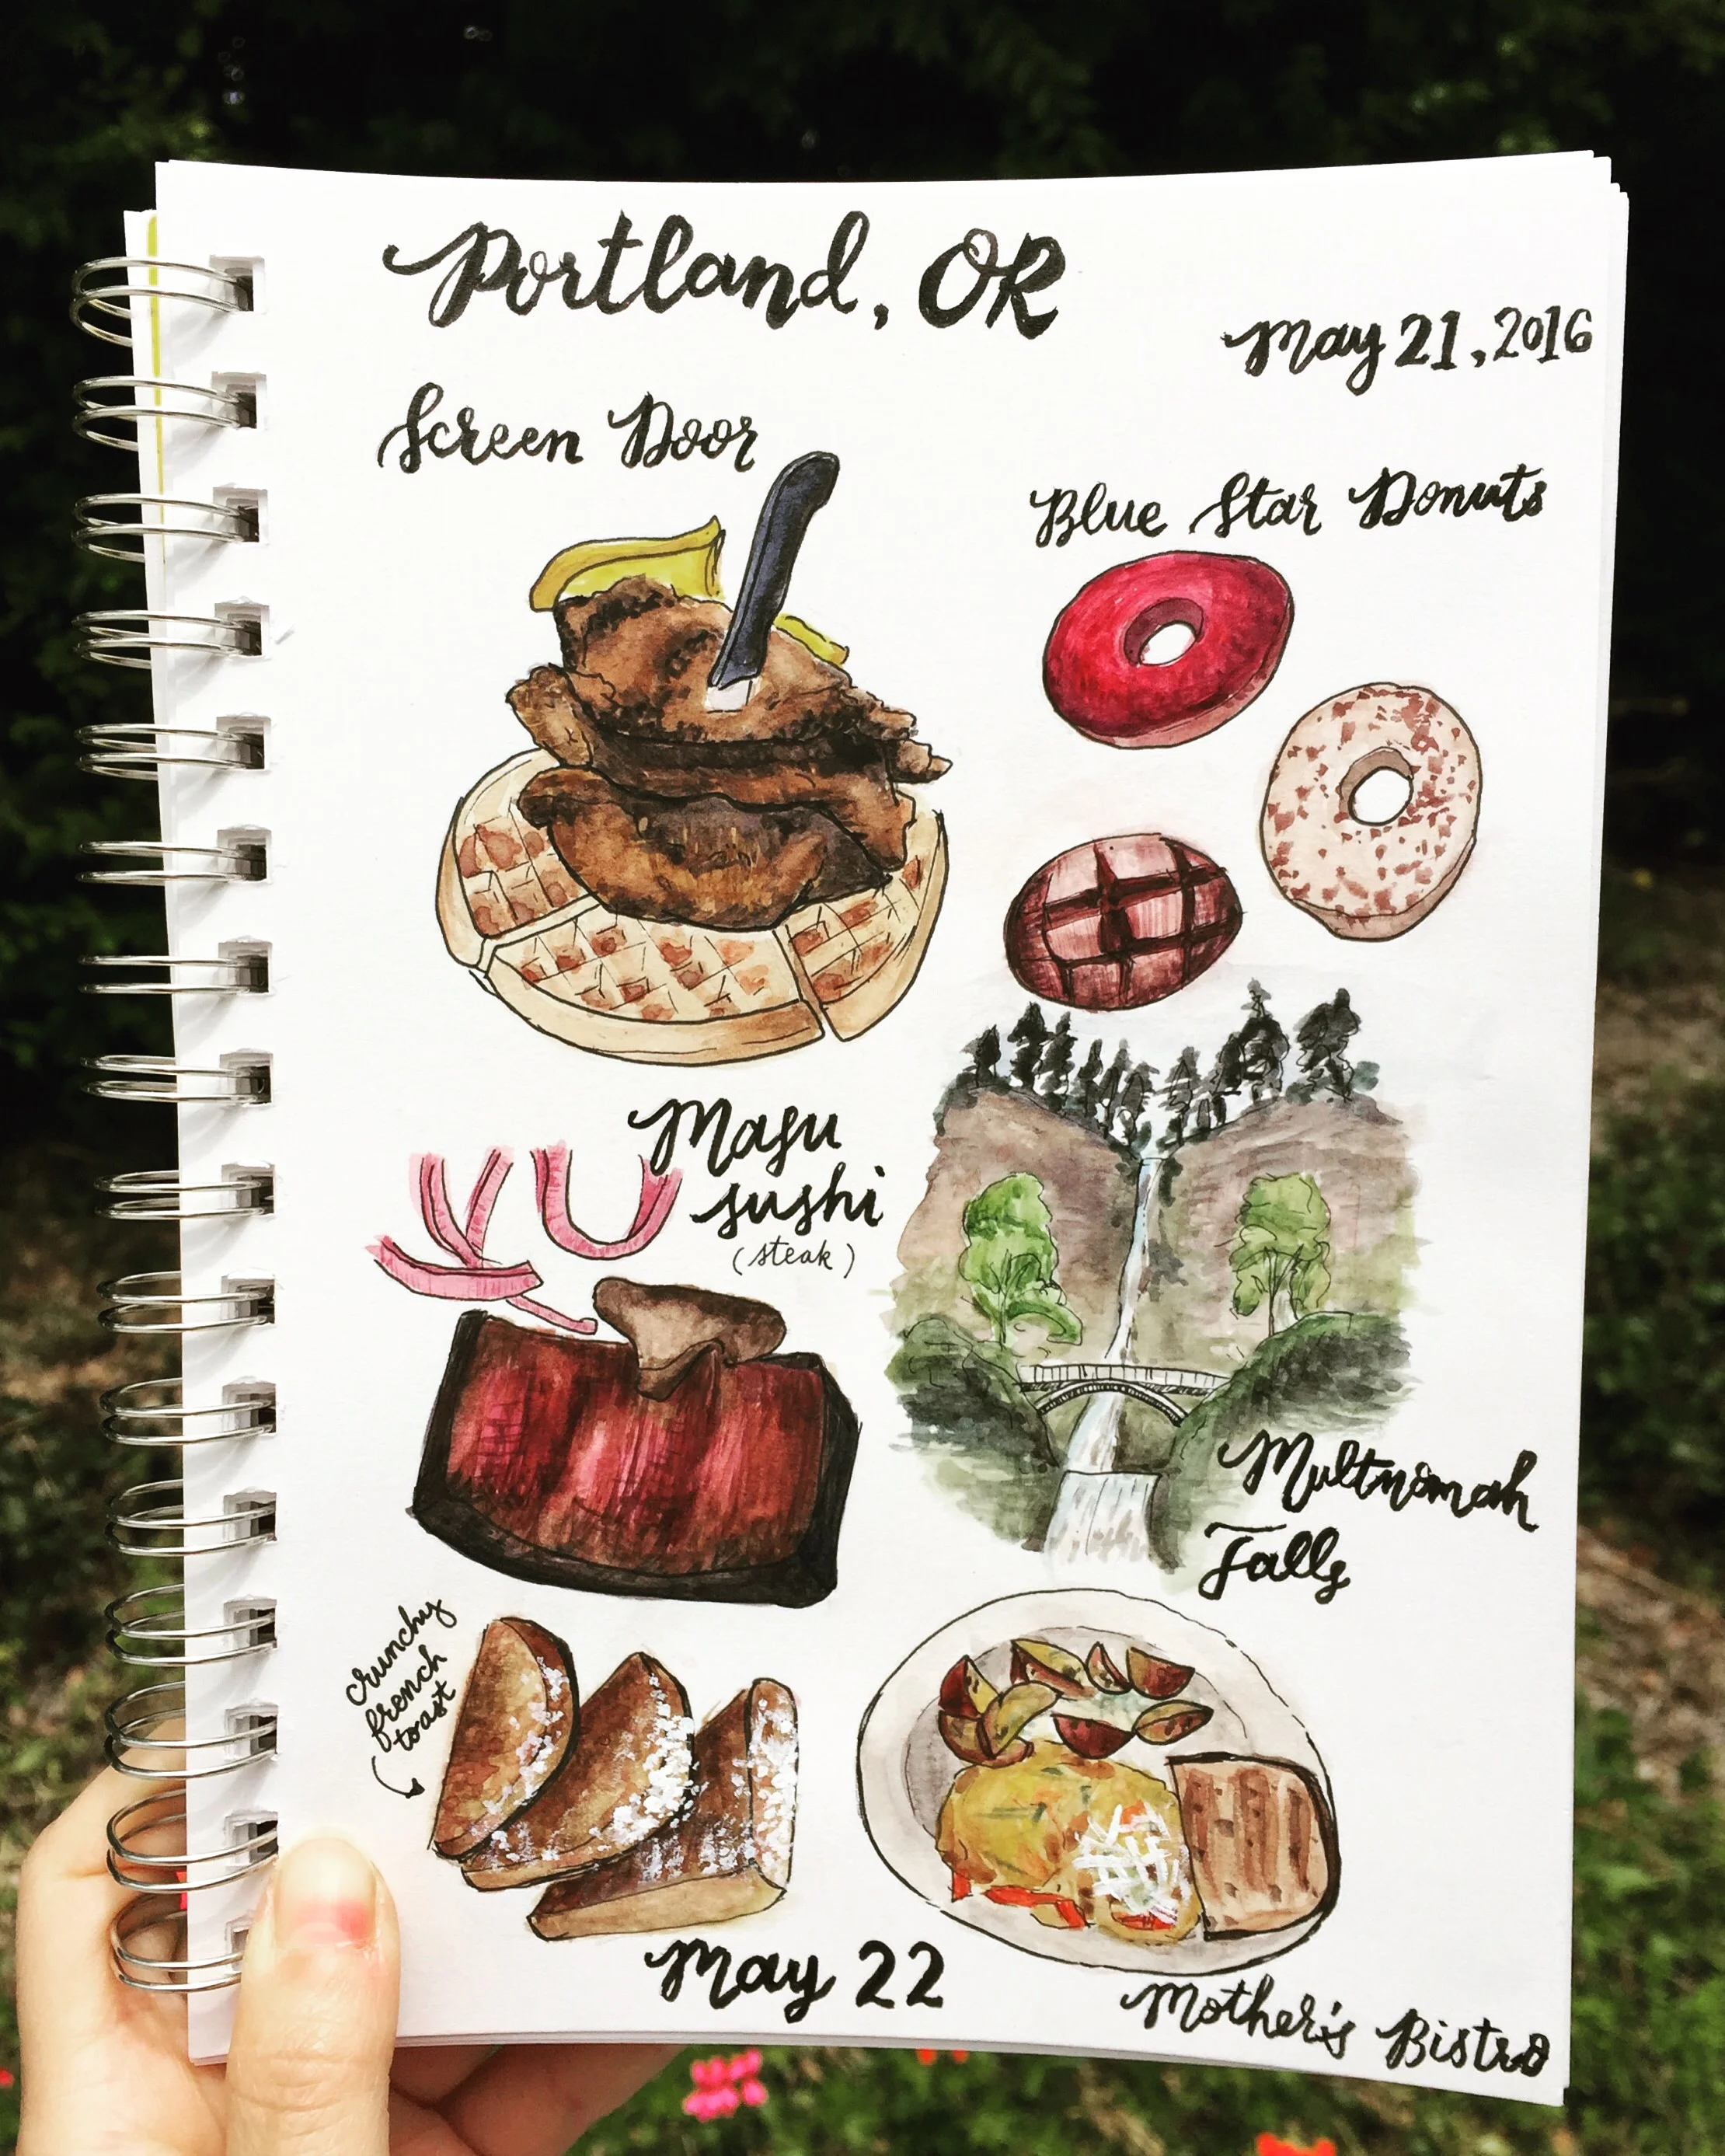 Portland, OR
May 21, 2016
Screen Door
Blue Star Donuts
Masu
sushi
(steak)
Multnomah
Falls
crunchy
french
toast
May 22
Mother's Bistro